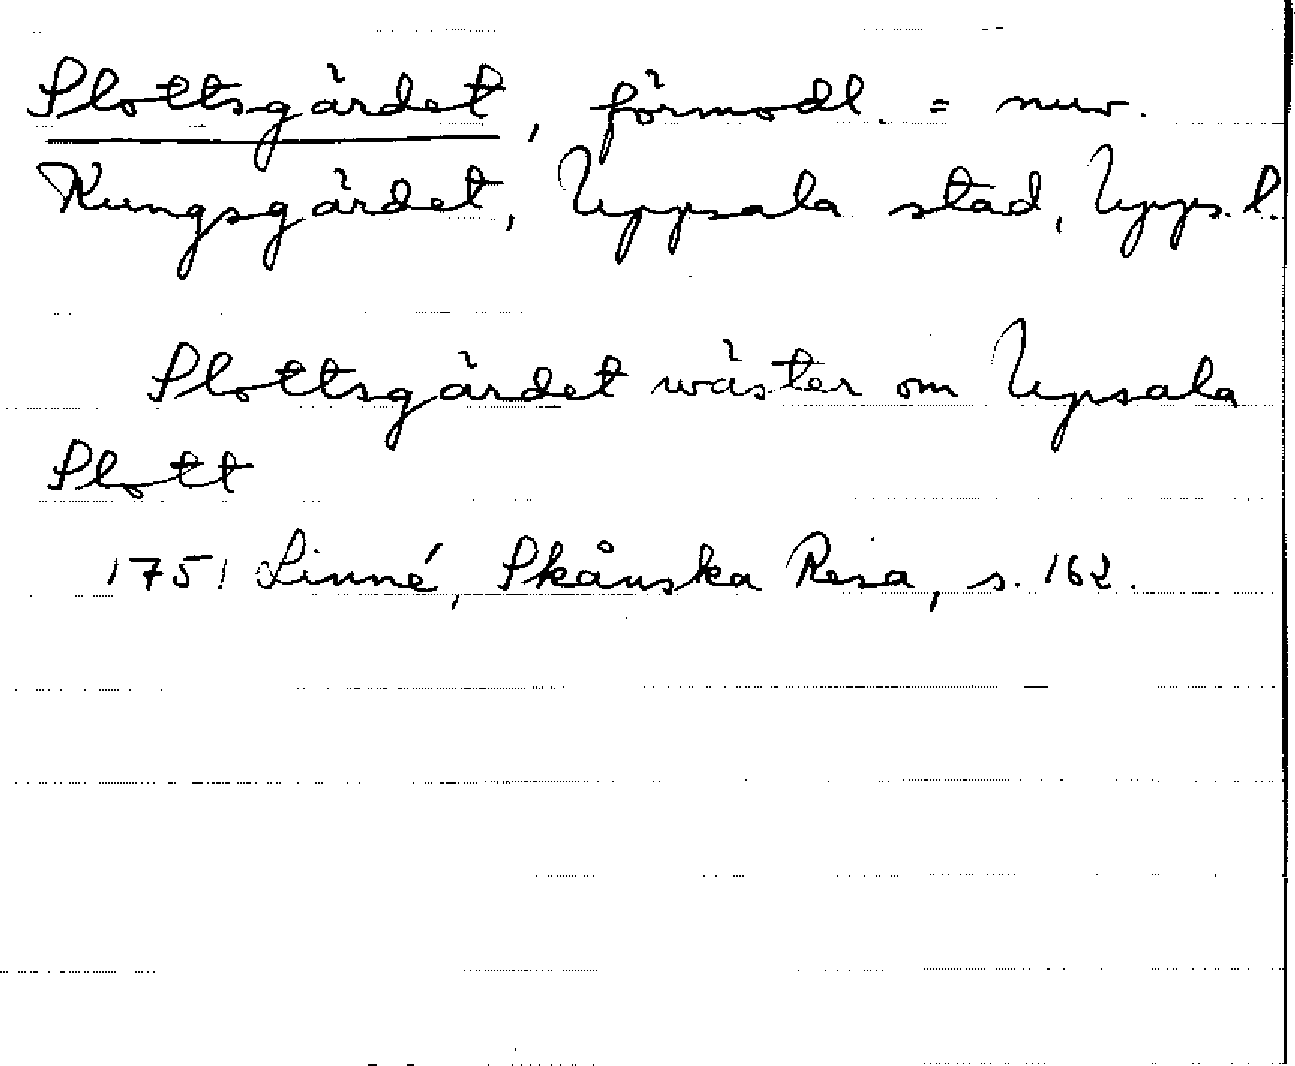 Slottsgärdet, förmodl. = nuv.
Kungsgärdet, Uppsala stad, Upps. l.
Slottsgärdet wäster om Upsala
Slott
1751 Linné, Skånska Resa, s. 162.